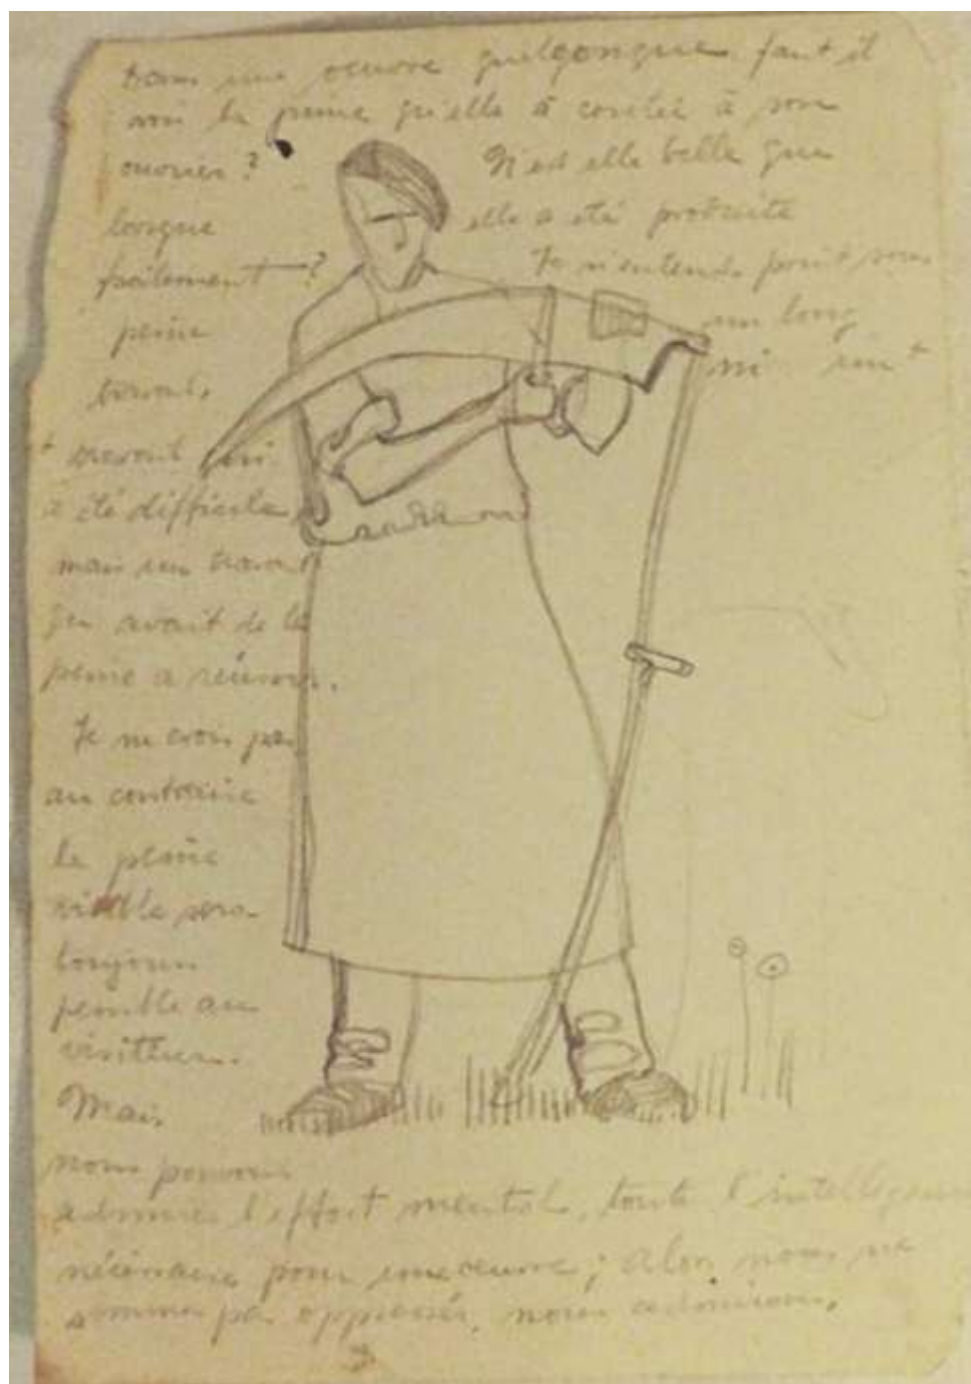 Dans une oeuvre quelqonque faut il
voir la peine qu'elle à coutée à son
ouvrier ? N'est elle belle que
lorsque elle a été produite
facilement ? Je n'entends point sous
peine un long
travail, ni un
travail qui
a été difficile
mais un travail
qu avait de la
peine a réussir.
Je ne crois pas
au contraire
la peine
visible sera
toujours
penible au
visiteur.
Mais
nous pouvons
admirer l'effort mental, toute l'intelligence
nécéssaire pour une oeuvre ; alors nous ne
sommes pas oppressés, nous admirons.